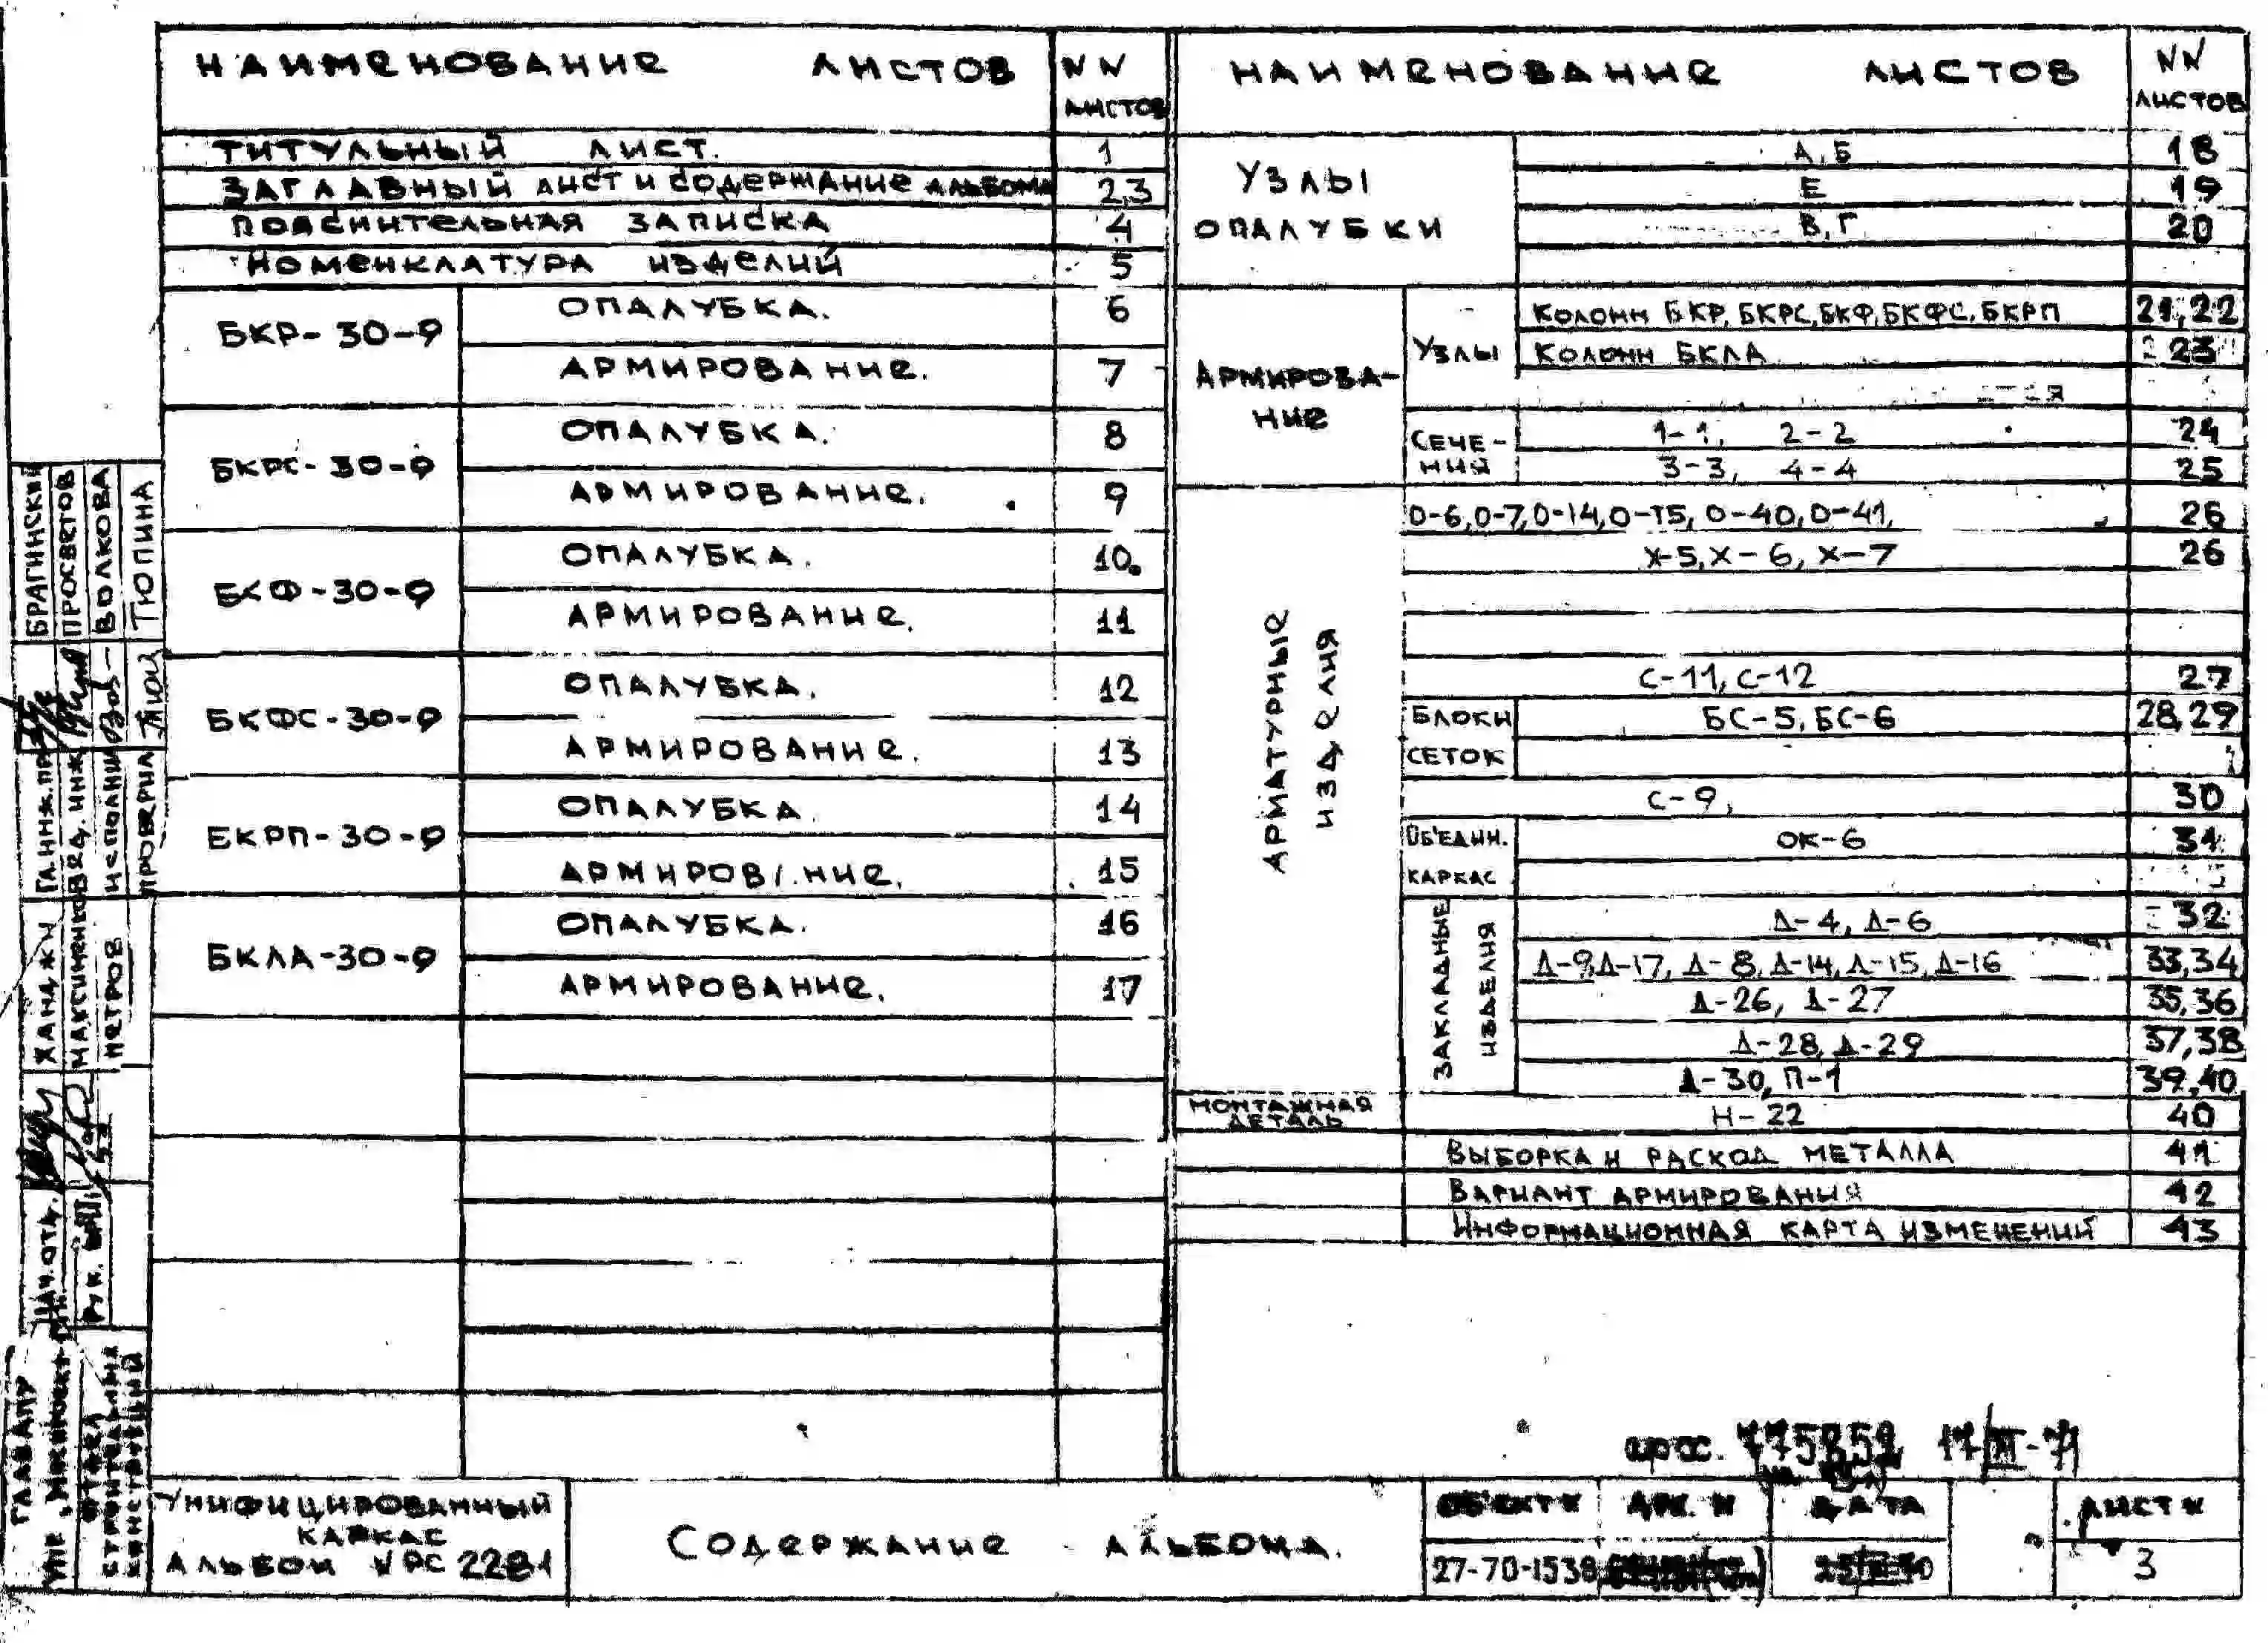 НАИМЕНОВАНИЕ ЛИСТОВ NN ЛИСТОВ
ТИТУЛЬНЫЙ ЛИСТ. 1
ЗАГЛАВНЫЙ ЛИСТ И СОДЕРЖАНИЕ АЛЬБОМА 2,3
ПОЯСНИТЕЛЬНАЯ ЗАПИСКА 4
НОМЕНКЛАТУРА ИЗДЕЛИЙ 5
БКР-30-9
ОПАЛУБКА. 6
АРМИРОВАНИЕ. 7
БКРС-30-9
ОПАЛУБКА. 8
АРМИРОВАНИЕ. 9
БКФ-30-9
ОПАЛУБКА. 10.
АРМИРОВАНИЕ. 11
БКФС-30-9
ОПАЛУБКА. 12
АРМИРОВАНИЕ. 13
БКРП-30-9
ОПАЛУБКА 14
АРМИРОВАНИЕ. 15
БКЛА-30-9
ОПАЛУБКА. 16
АРМИРОВАНИЕ. 17
НАИМЕНОВАНИЕ ЛИСТОВ NN ЛИСТОВ
УЗЛЫ
ОПАЛУБКИ
А,Б 18
Е 19
В,Г 20
АРМИРОВА-
НИЕ
УЗЛЫ
Колонн БКР, БКРС, БКФ, БКФС, БКРП 21,22
Колонн БКЛА 23
СЕЧЕ-
НИЯ
1-1, 2-2 24
3-3, 4-4 25
АРМАТУРНЫЕ
ИЗДЕЛИЯ
О-6, О-7, О-14, О-15, О-40, О-41, 26
Х-5, Х-6, Х-7 26
С-11, С-12 27
БЛОКИ
СЕТОК
БС-5, БС-6 28,29
С-9, 30
ОБ'ЕДИН.
КАРКАС
ОК-6 31
ЗАКЛАДНЫЕ
ИЗДЕЛИЯ
Д-4, Д-6 32
Д-9, Д-17, Д-8, Д-14, Д-15, Д-16 33,34
Д-26, Д-27 35,36
Д-28, Д-29 37,38
Д-30, П-1 39,40
МОНТАЖНАЯ
ДЕТАЛЬ
Н-22 40
ВЫБОРКА И РАСХОД МЕТАЛЛА 41
ВАРИАНТ АРМИРОВАНИЯ 42
ИНФОРМАЦИОННАЯ КАРТА ИЗМЕНЕНИЙ 43
БРАГИНСКИЙ
ПРОСВЕТОВ
ВОЛКОВА
ТЮПИНА
ГЛ.ИНЖ.ПР
ИСПОЛНИЛ
ПРОВЕРИЛ
ХАНДЖИ
МАКСИМЕНКОВ
ПЕТРОВ
НАЧ.ОТД.
РУК.
ГЛАВАПУ
ОТДЕЛ
СТРОИТЕЛЬНЫХ
КОНСТРУКЦИЙ
УНИФИЦИРОВАННЫЙ
КАРКАС
АЛЬБОМ
2281
СОДЕРЖАНИЕ АЛЬБОМА.
ОБ'ЕКТ N АРХ. N ДАТА ЛИСТ N
27-70-1538
3